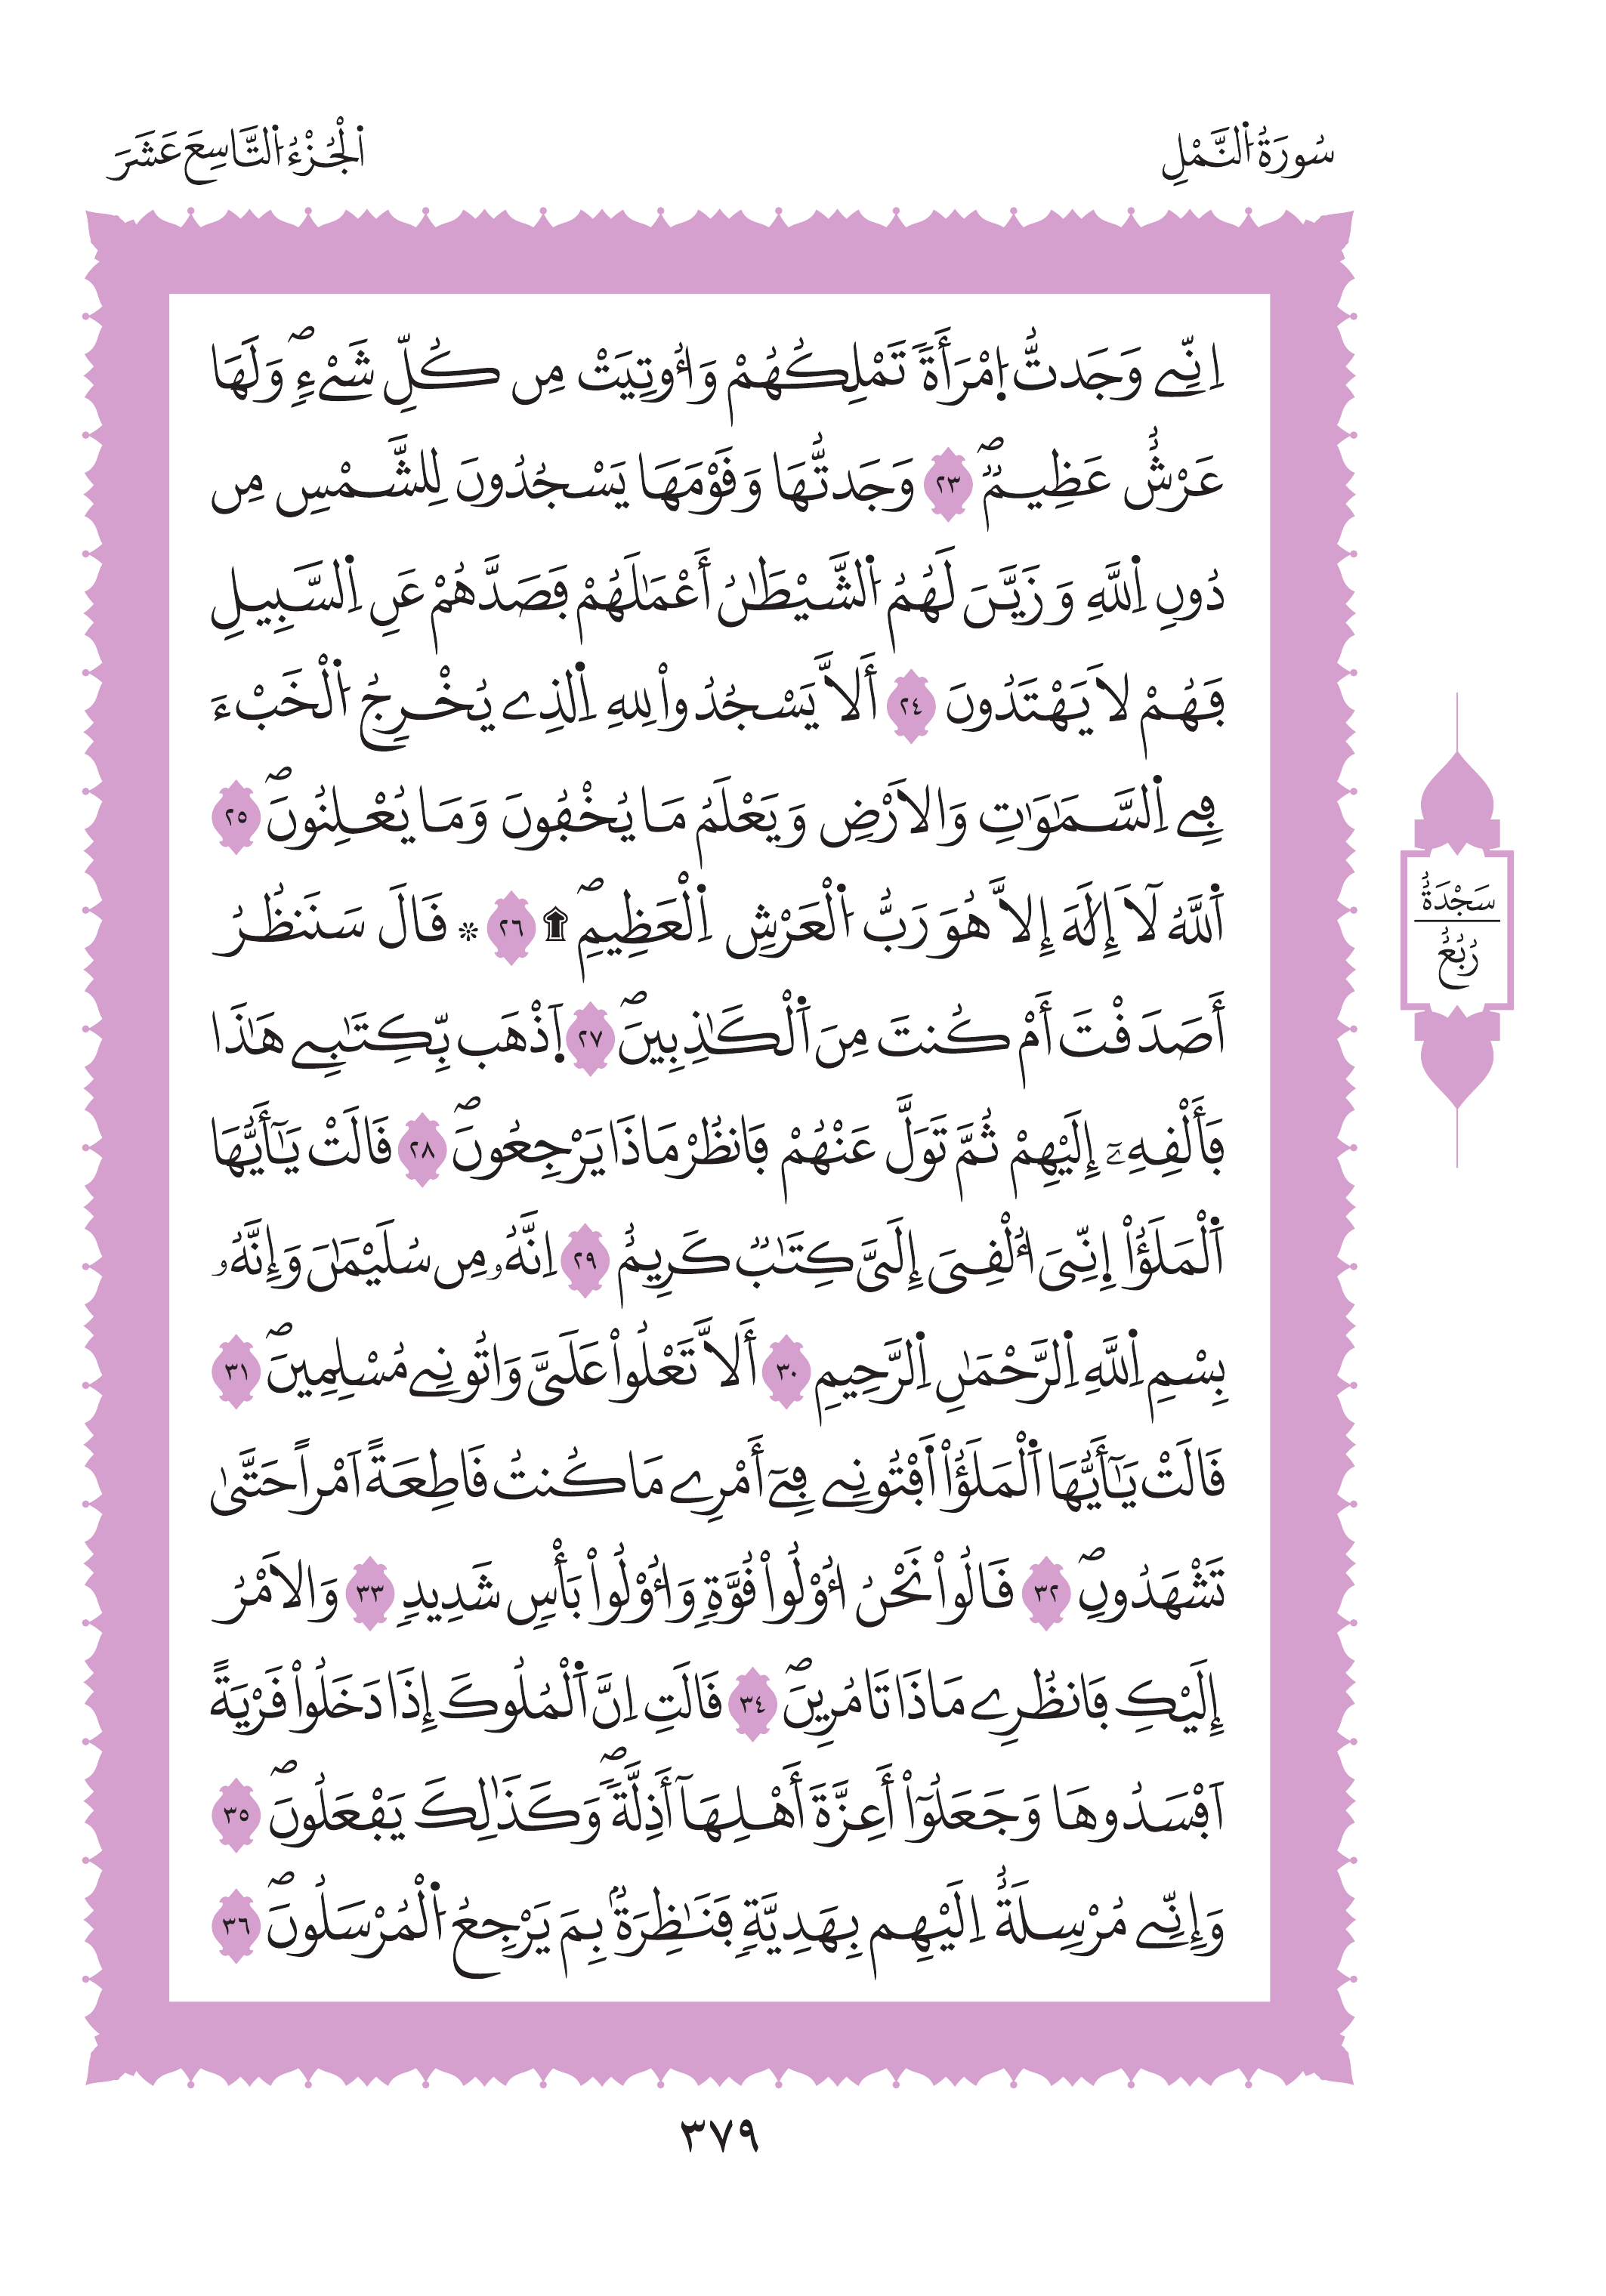 سُورَةُ اُ۬لنَّمْلِ
اُ۬لْجُزْءُ اُ۬لتَّاسِعَ عَشَرَ
اِنِّے وَجَدتُّ اُ۪مْرَأَةٗ تَمْلِكُهُمْ وَأُوتِيَتْ مِن كُلِّ شَےْءٖۖ وَلَهَا
عَرْشٌ عَظِيمٞۖ ٢٣ وَجَدتُّهَا وَقَوْمَهَا يَسْجُدُونَ لِلشَّمْسِ مِن
دُونِ اِ۬للَّهِ وَزَيَّنَ لَهُمُ اُ۬لشَّيْطَٰنُ أَعْمَٰلَهُمْ فَصَدَّهُمْ عَنِ اِ۬لسَّبِيلِ
فَهُمْ لَا يَهْتَدُونَ ٢٤ أَلَّا يَسْجُدُواْ لِلهِ اِ۬لذِے يُخْرِجُ اُ۬لْخَبْءَ
فِے اِ۬لسَّمَٰوَٰتِ وَالَارْضِ وَيَعْلَمُ مَا يُخْفُونَ وَمَا يُعْلِنُونَۖ ٢٥
اَ۬للَّهُ لَآ إِلَٰهَ إِلَّا هُوَ رَبُّ اُ۬لْعَرْشِ اِ۬لْعَظِيمِۖ ۩ ٢٦ ۞ قَالَ سَنَنظُرُ
أَصَدَقْتَ أَمْ كُنتَ مِنَ اَ۬لْكَٰذِبِينَۖ ٢٧ اَ۪ذْهَب بِّكِتَٰبِے هَٰذَا
فَأَلْقِهِۦٓ إِلَيْهِمْ ثُمَّ تَوَلَّ عَنْهُمْ فَانظُرْ مَاذَا يَرْجِعُونَۖ ٢٨ قَالَتْ يَٰٓأَيُّهَا
اَ۬لْمَلَؤُاْ اِ۪نِّيَ أُلْقِيَ إِلَيَّ كِتَٰبٞ كَرِيمٌ ٢٩ اِنَّهُۥ مِن سُلَيْمَٰنَ وَإِنَّهُۥ
بِسْمِ اِ۬للَّهِ اِ۬لرَّحْمَٰنِ اِ۬لرَّحِيمِ ٣٠ أَلَّا تَعْلُواْ عَلَيَّ وَاتُونِے مُسْلِمِينَۖ ٣١
قَالَتْ يَٰٓأَيُّهَا اَ۬لْمَلَؤُاْ اَ۬فْتُونِے فِےٓ أَمْرِے مَا كُنتُ قَاطِعَةً اَمْراً حَتَّىٰ
تَشْهَدُونِۖ ٣٢ قَالُواْ نَحْنُ أُوْلُواْ قُوَّةٖ وَأُوْلُواْ بَأْسٖ شَدِيدٖ ٣٣ وَالَامْرُ
إِلَيْكِ فَانظُرِے مَاذَا تَامُرِينَۖ ٣٤ قَالَتِ اِنَّ اَ۬لْمُلُوكَ إِذَا دَخَلُواْ قَرْيَةً
اَفْسَدُوهَا وَجَعَلُوٓاْ أَعِزَّةَ أَهْلِهَآ أَذِلَّةٗۖ وَكَذَٰلِكَ يَفْعَلُونَۖ ٣٥
وَإِنِّے مُرْسِلَةٌ اِلَيْهِم بِهَدِيَّةٖ فَنَٰظِرَةُۢ بِمَ يَرْجِعُ اُ۬لْمُرْسَلُونَۖ ٣٦
سَجْدَةٌ
رُبُعُ
٣٧٩